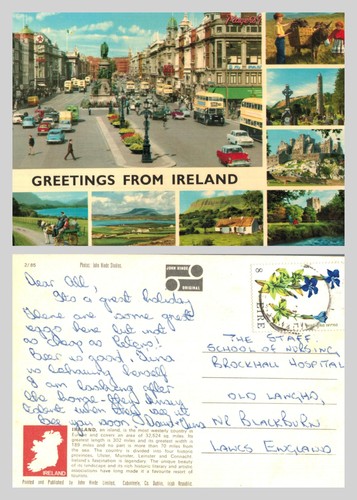 GREETINGS FROM IRELAND
2/86
Photo: John Hinde Studios.
Dear All,
It's a great holiday
there are some great
eggs here but not
as cheap as
Beer is good,
is behaving herself
I am looking after
the horse - they always
talent when they see it
See you soon
IRELAND, an island, is the most westerly country in
Europe and covers an area of 32,524 sq. miles. Its
greatest length is 302 miles and its greatest width is
189 miles and no part is more than 70 miles from
the sea. The country is divided into four historic
provinces, Ulster, Munster, Leinster and Connacht.
Ireland's fascination is legendary. The unique beauty
of its landscape and its rich historic literary and artistic
associations have long made it a favourite resort of
tourists.
IRELAND
Printed and Published by John Hinde Limited, Cabinteely, Co. Dublin,
8
EIRE
THE STAFF
SCHOOL OF NURSING
BROCKHALL HOSPITAL
OLD LANGHO,
NR BLACKBURN
LANCS ENGLAND